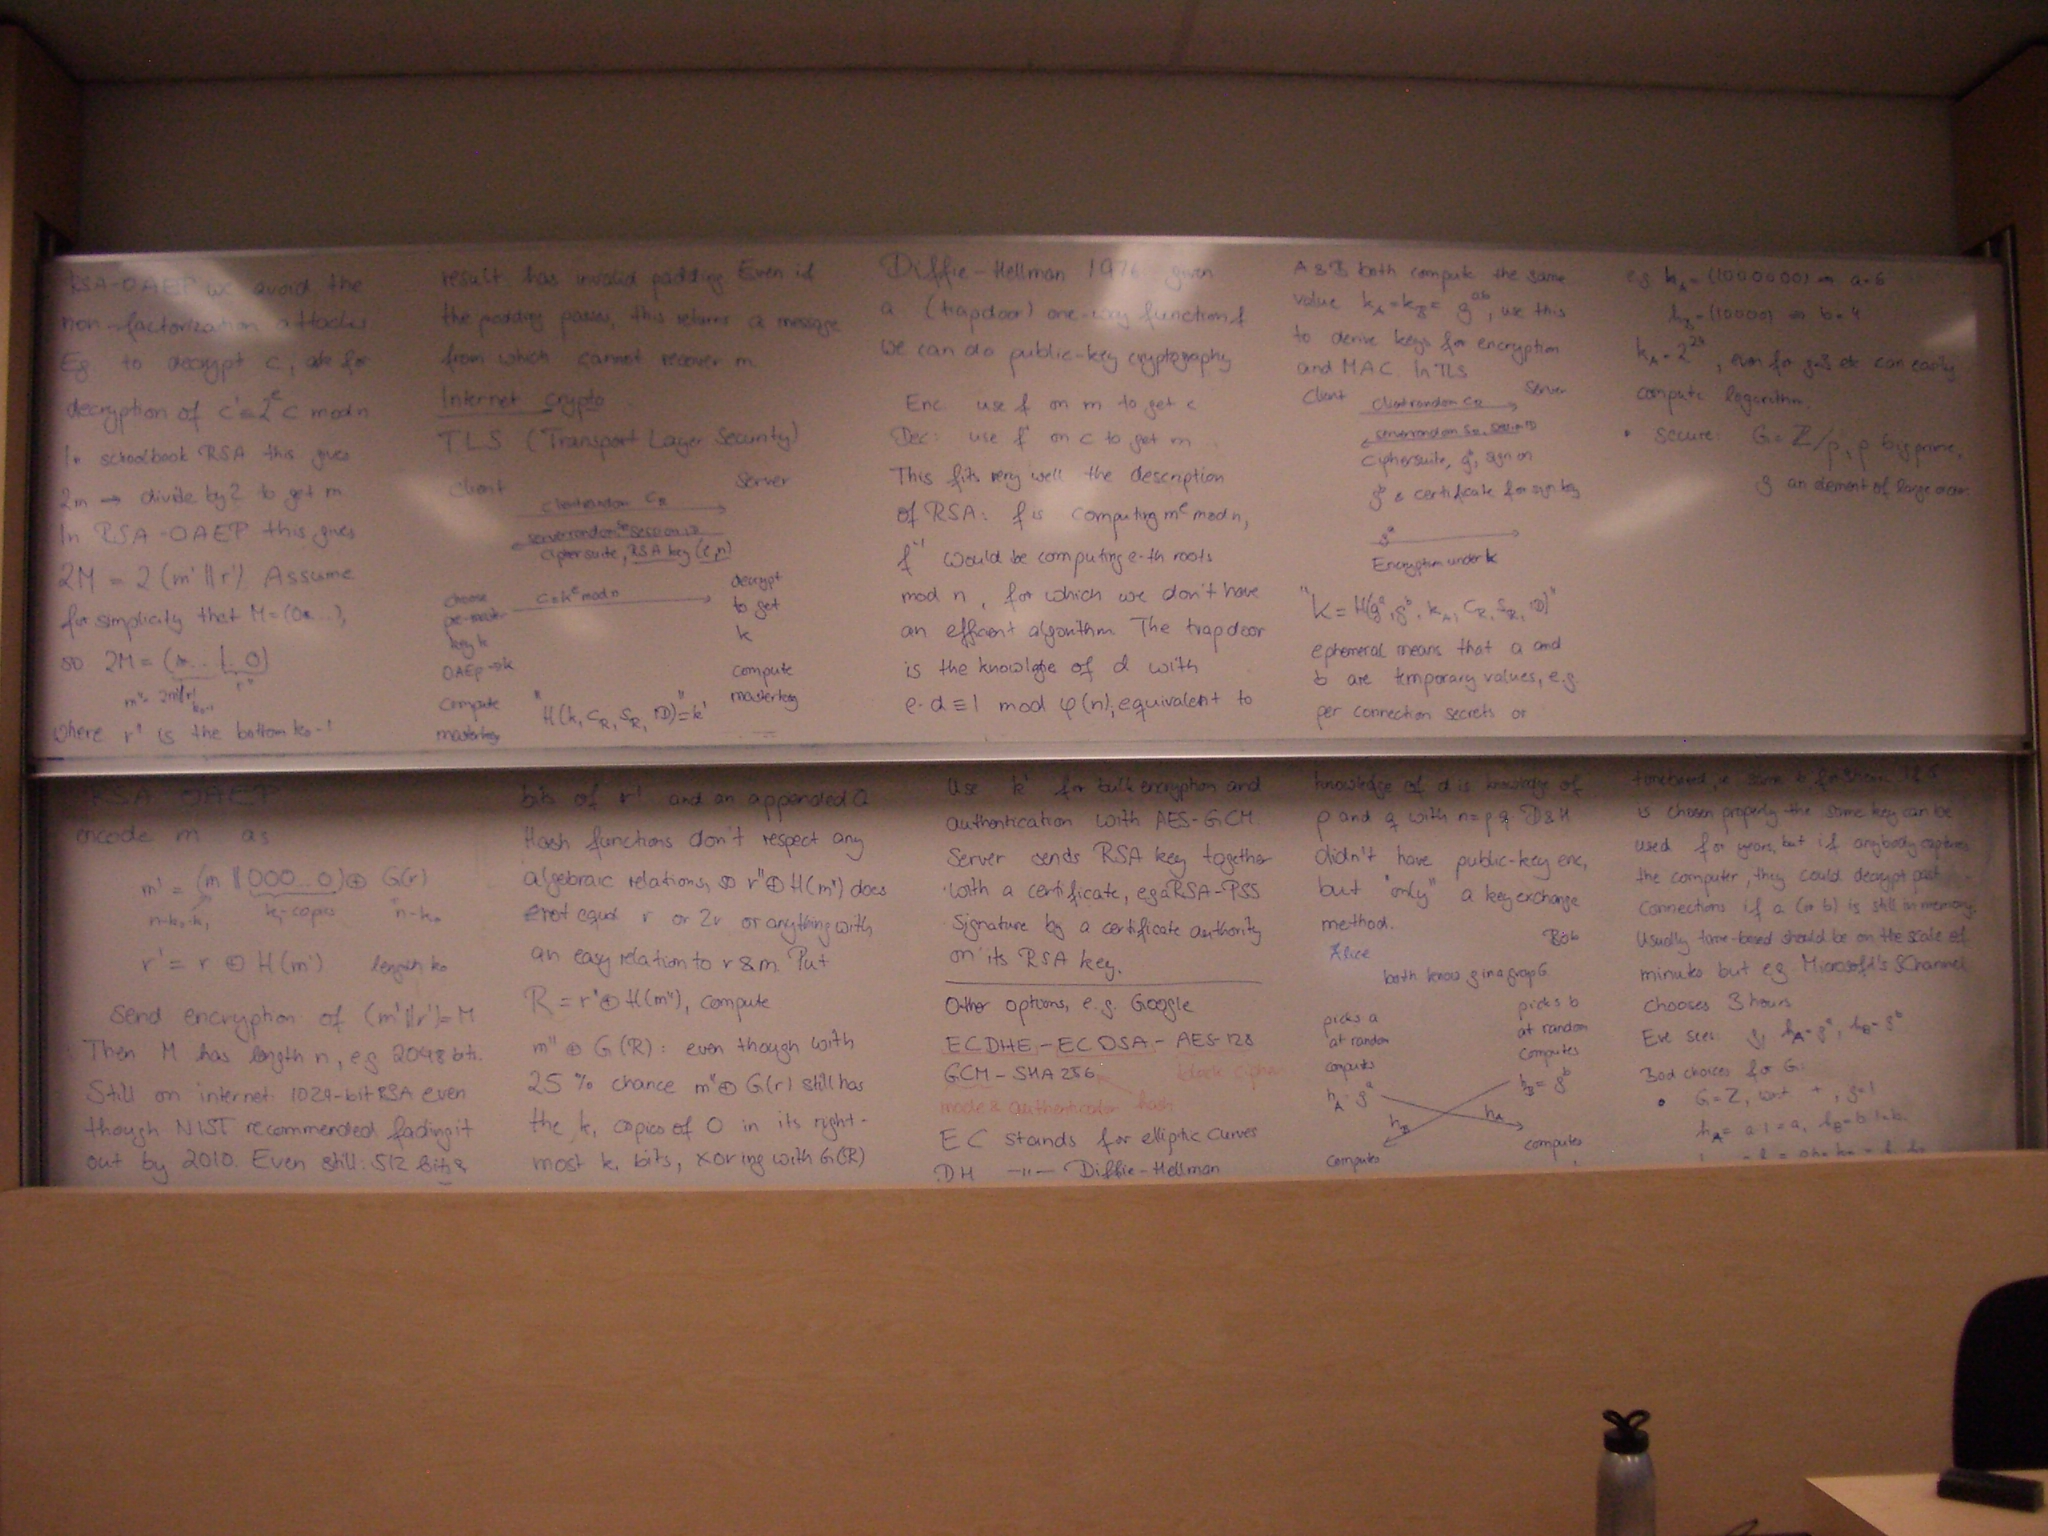 RSA-OAEP we avoid the
non-factorization attacks
Eg. to decrypt c, ask for
decryption of c'≡2^e c mod n
In schoolbook RSA this gives
2m → divide by 2 to get m.
In RSA-OAEP this gives
2M = 2(m'||r'). Assume
for simplicity that M=(0...),
so 2M = (... 0)
r"
where r' is the bottom k₀-1
result has invalid padding Even if
the padding passes, this returns a message
from which cannot recover m.
Internet crypto
TLS (Transport Layer Security)
client
server
clientrandom C_R
serverrandom S_R session ID
ciphersuite, RSA key (e,n)
choose
pre-master
key k
OAEP→k
c=k^e mod n
decrypt
to get
k
compute
master key
"H(k, C_R, S_R, ID)"=k'
compute
master key
Diffie-Hellman 1976 given
a (trapdoor) one-way function f
we can do public-key cryptography
Enc: use f on m to get c
Dec: use f on c to get m
This fits very well the description
of RSA: f is computing m^e mod n,
f^-1 would be computing e-th roots
mod n, for which we don't have
an efficient algorithm. The trapdoor
is the knowledge of d with
e·d≡1 mod φ(n), equivalent to
A & B both compute the same
value k_A=k_B= g^ab, use this
to derive keys for encryption
and MAC. In TLS
client
server
clientrandom C_R
serverrandom S_R, sess ID
ciphersuite, g^b, sign on
g^b & certificate for sign key
g^a
Encryption under k
"k = H(g^a, g^b, k_A, C_R, S_R, ID)"
ephemeral means that a and
b are temporary values, e.g.
per connection secrets or
e.g. h_A=(1000000) ⇒ a=6
h_B=(10000) ⇒ b=4
k_A=2^24, even for g=3 etc can easily
compute logarithm.
• secure: G=Z/p, p big prime,
g an element of large order.
RSA OAEP
encode m as
m' = (m||000...0)⊕ G(r)
n-k₀-k₁ k₁-copies n-k₀
r' = r ⊕ H(m') length k₀
Send encryption of (m'||r')=M
Then M has length n, e.g 2048 bits.
Still on internet: 1024-bit RSA even
though NIST recommended fading it
out by 2010. Even still: 512 bits
bits of r' and an appended 0
Hash functions don't respect any
algebraic relations, so r"⊕H(m") does
not equal r or 2r or anything with
an easy relation to r & m. Put
R = r"⊕H(m"), compute
m" ⊕ G(R): even though with
25% chance m"⊕ G(r) still has
the k₁ copies of 0 in its right-
most k₁ bits, xoring with G(R)
Use k' for bulk encryption and
authentication with AES-GCM.
Server sends RSA key together
with a certificate, e.g. a RSA-PSS
signature by a certificate authority
on its RSA key.
Other options, e.g. Google
ECDHE-ECDSA-AES-128
GCM-SHA256
block cipher
mode & authenticator hash
EC stands for elliptic curves
DH —"— Diffie-Hellman
knowledge of d is knowledge of
p and q with n=p q. D&H
didn't have public-key enc,
but "only" a key exchange
method.
Alice
Bob
both know g in a group G
picks a
at random
computes
h_A=g^a
picks b
at random
computes
h_B=g^b
h_B
h_A
computes
computes
timebased, ie same b for 3 hours. If G
is chosen properly the same key can be
used for years, but if anybody captures
the computer, they could decrypt past
connections if a (or b) is still in memory.
Usually time-based should be on the scale of
minutes but e.g Microsoft's SChannel
chooses 3 hours
Eve sees: g, h_A=g^a, h_B=g^b
Bad choices for G:
• G=Z, wrt +, g=1
h_A= a·1=a, h_B=b·1=b